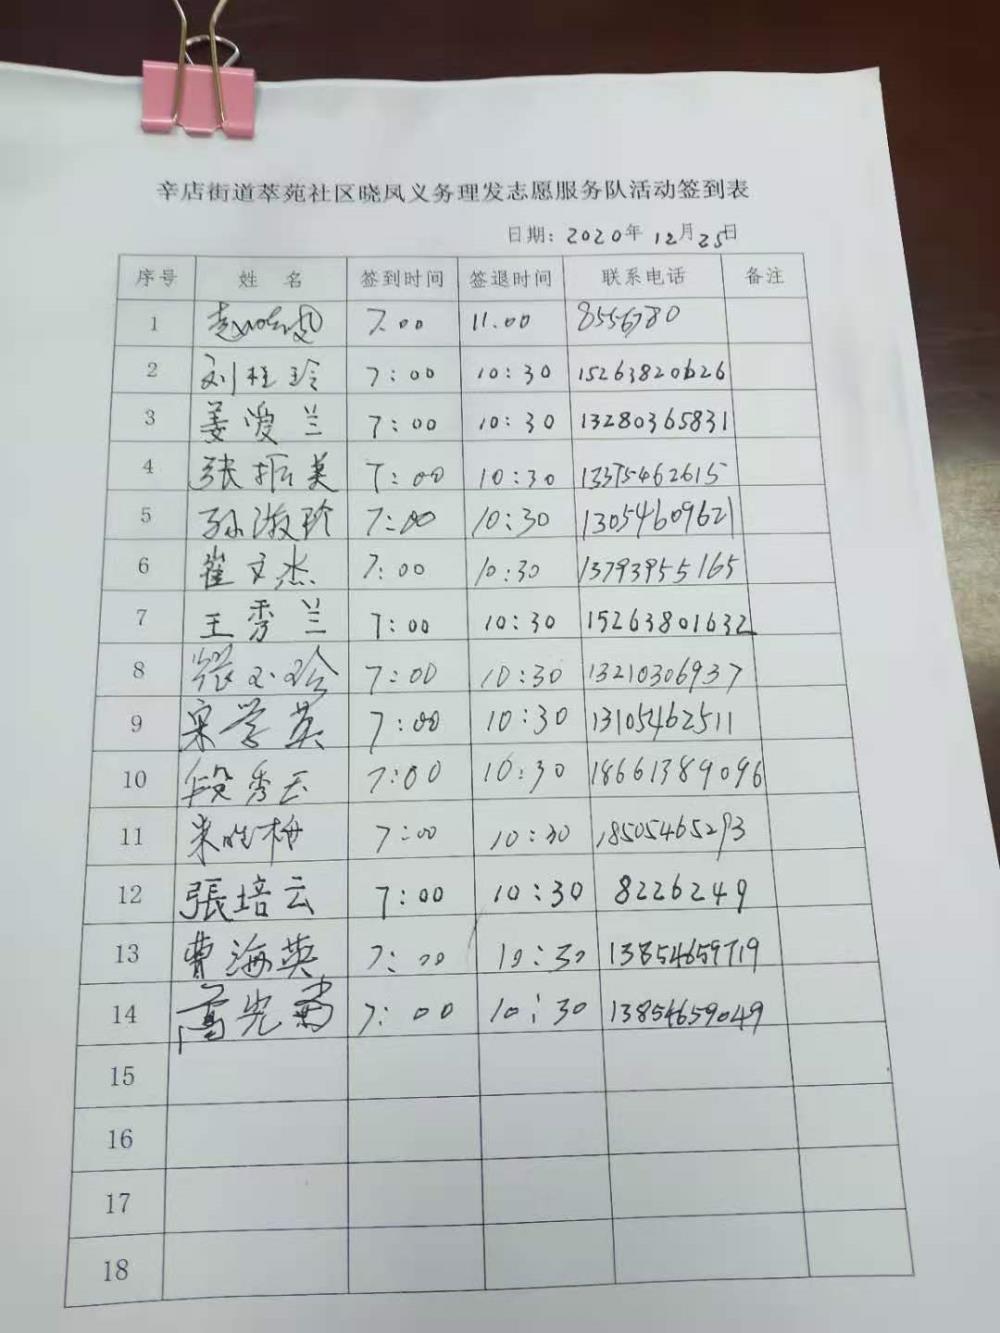 辛店街道萃苑社区晓凤义务理发志愿服务队活动签到表
日期：2020年12月25日
序号 姓 名 签到时间 签退时间 联系电话 备注
1 赵晓凤 7.00 11.00 8556780
2 刘桂玲 7:00 10:30 15263820626
3 姜爱兰 7:00 10:30 13280365831
4 张振美 7:00 10:30 13375462615
5 孙淑珍 7:00 10:30 13054609621
6 崔文杰 7:00 10:30 13793955165
7 王秀兰 7:00 10:30 15263801632
8 张玉珍 7:00 10:30 13210306937
9 宋学英 7:00 10:30 13105462511
10 段秀玉 7:00 10:30 18661389096
11 7:00 10:30 18505465293
12 張培云 7:00 10:30 8226249
13 曹海英 7:00 10:30 13854659719
14 7:00 10:30 13854659049
15
16
17
18